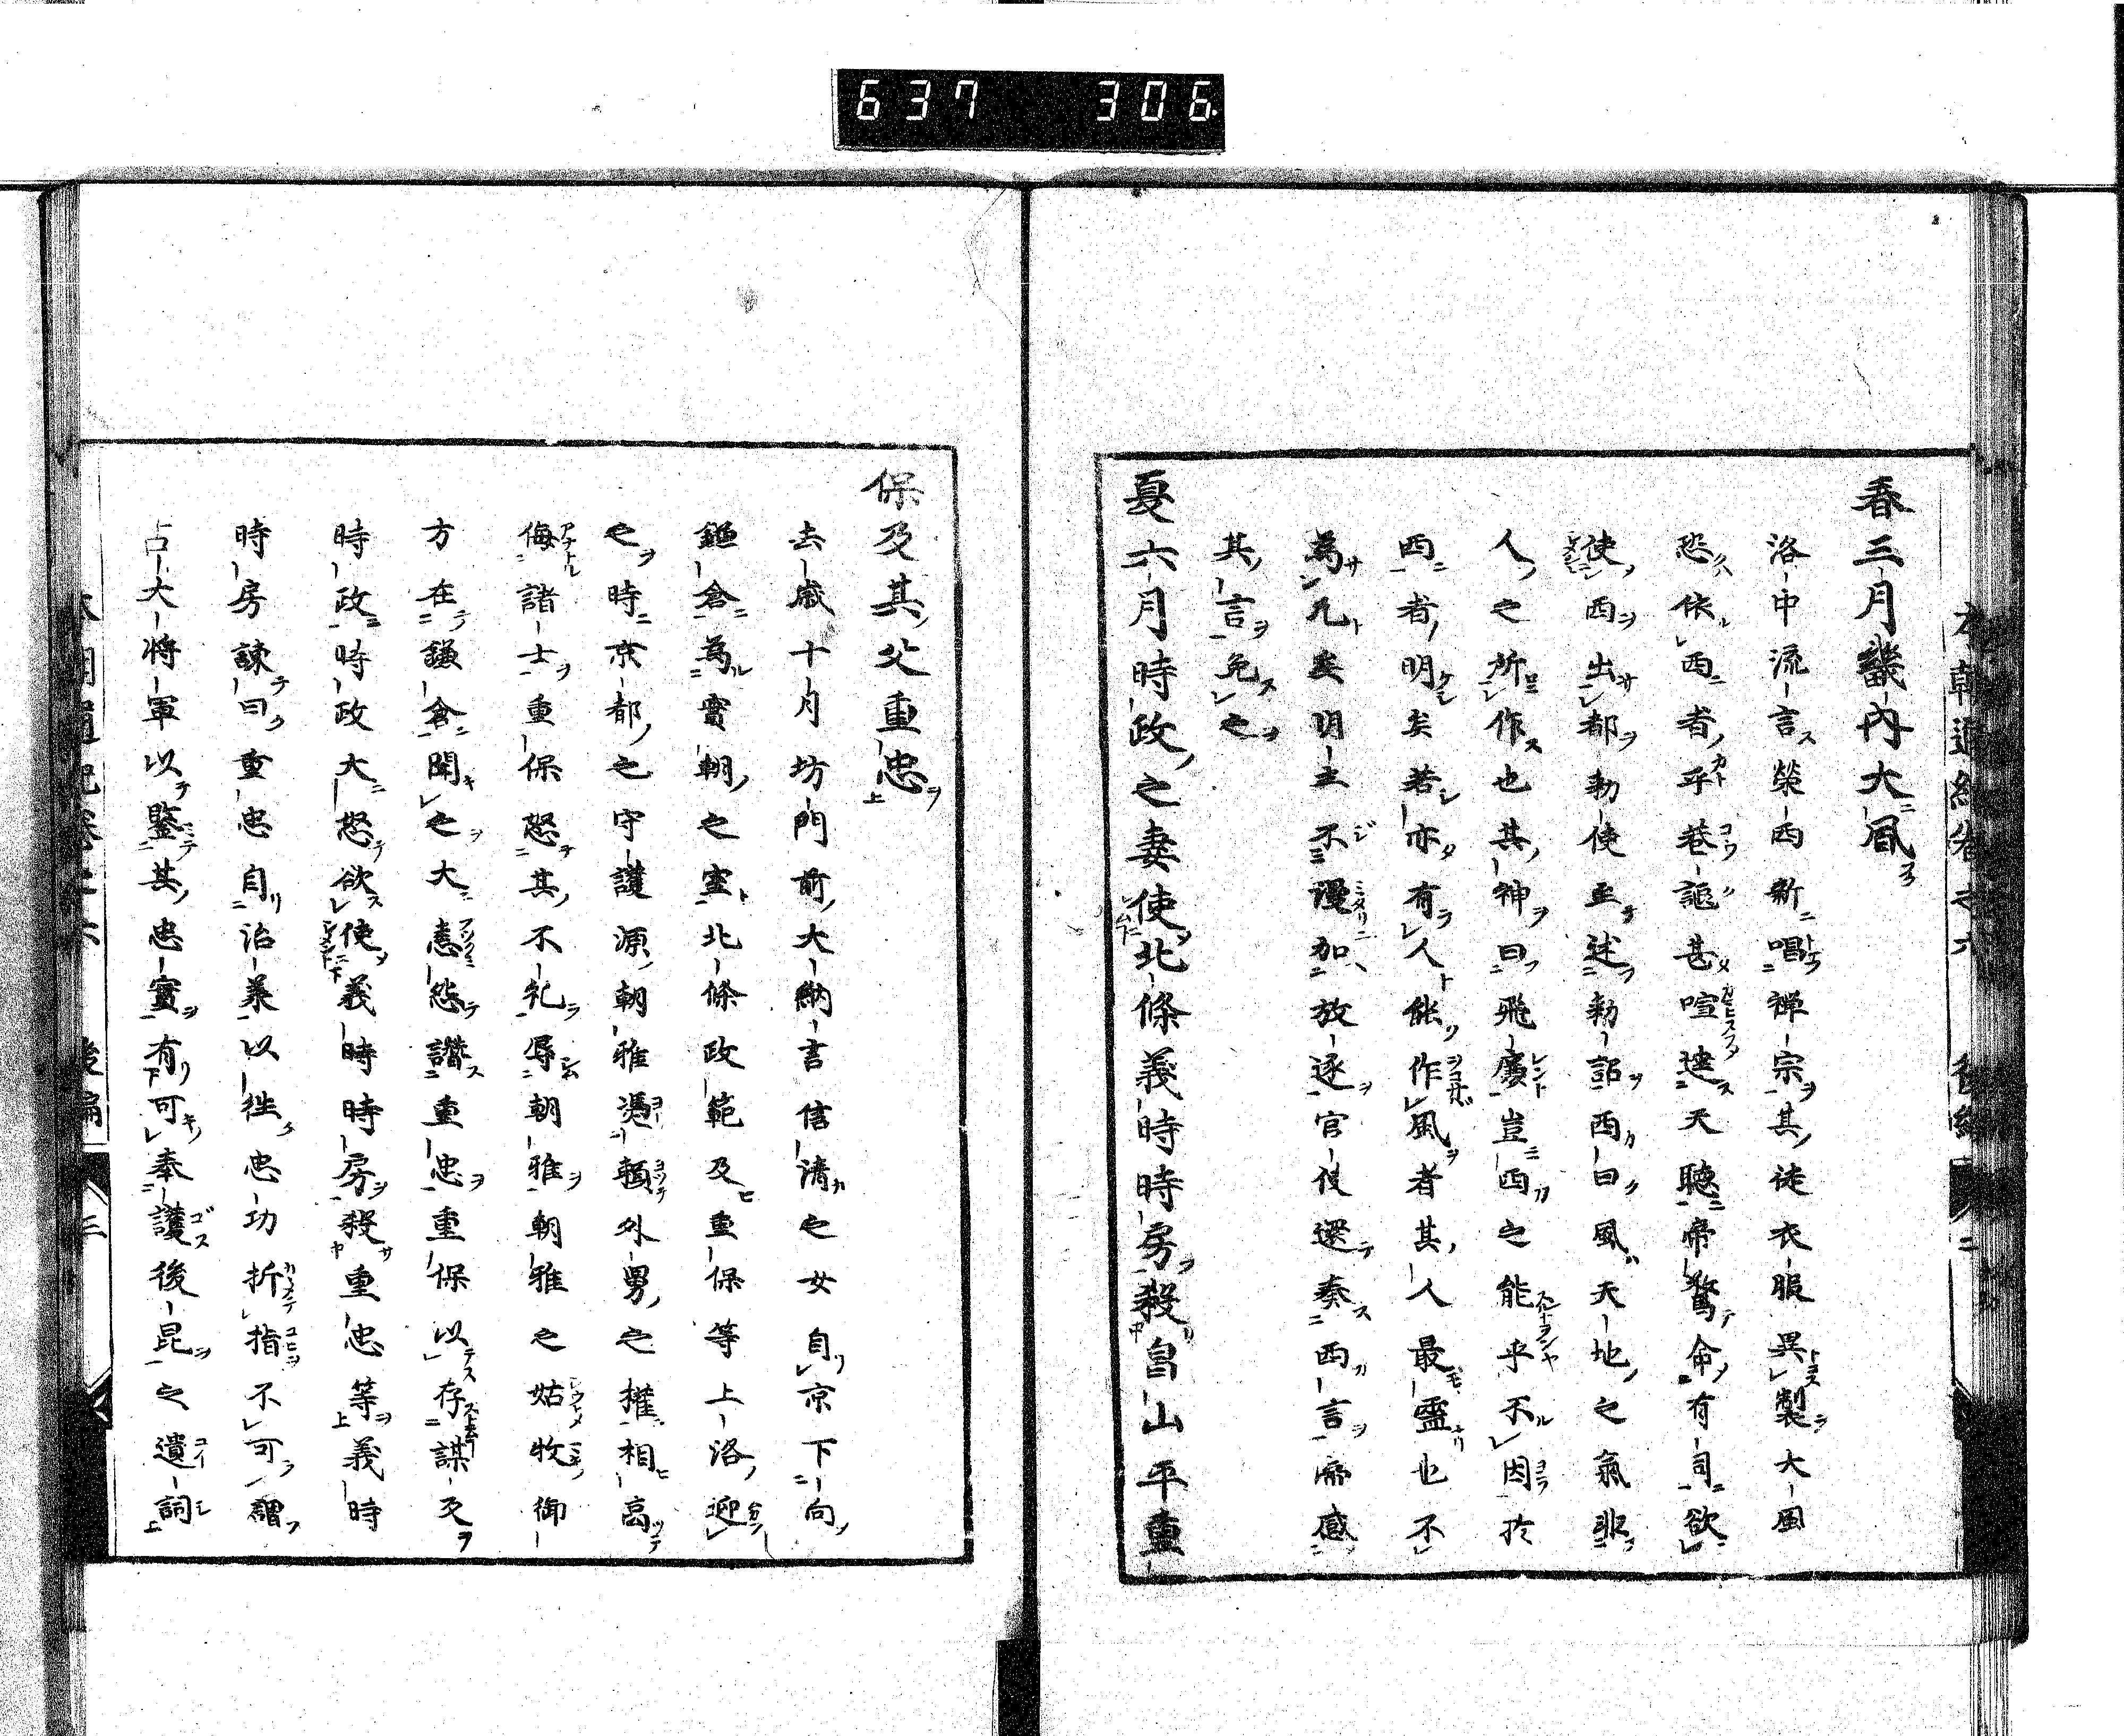 637 306
春三月畿内大風
洛中流言榮西新唱禪宗其徒衣服異製大風
恐依西者乎巷謳甚喧達天聽帝驚命有司欲
使西出都勅使至述勅詔西曰風天地之氣非
人之所作也其神曰飛廉豈西之能乎不因於
西者明矣若亦有人能作風者其人最靈也不
為凡矣明主不謾加放逐官使還奏西言帝感
其言免之
夏六月時政之妻使北條義時時房殺畠山平重
保及其父重忠
去歲十月坊門前大納言信清之女自京下向
鎌倉為實朝之室北條政範及重保等上洛迎
之時京都之守護源朝雅憑賴外舅之權相高
侮諸士重保怒其不礼辱朝雅朝雅之姑牧御
方在鎌倉聞之大恚怨譖重忠重保以存謀反
時政時政大怒欲使義時時房殺重忠等義時
時房諫曰重忠自治暴以徃忠功折指不可謂
占大將軍以鑒其忠實有可奉護後昆之遺詞